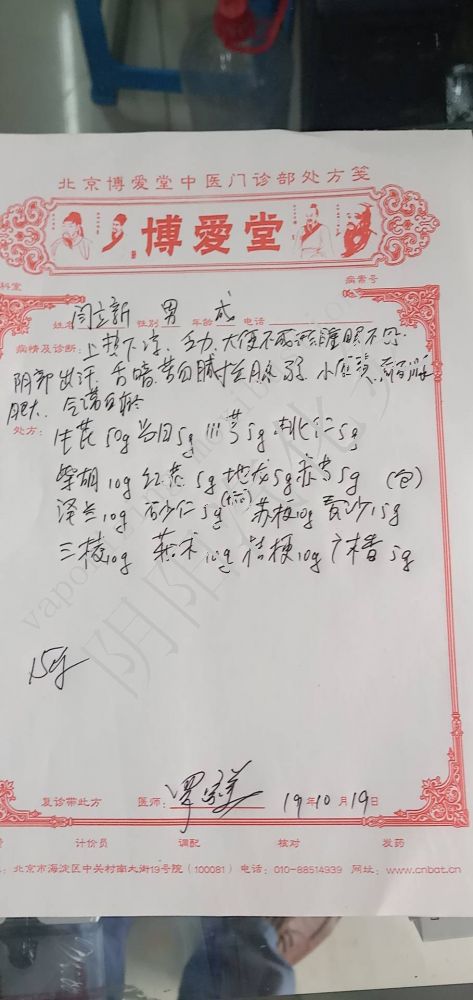 北京博爱堂中医门诊部处方笺
博爱堂
科室 病案号
姓名 闫立新 性别 男 年龄 成 电话
病情及诊断: 上热下凉 乏力 大便不成形 睡眠不好
阴部出汗 舌暗 苦 脉弱 小便黄
胆大
处方: 生芪50g 当归5g 川芎5g 桃仁5g
柴胡10g 红花5g 地龙5g 5g (包)
泽兰10g 砂仁5g 苏梗10g 15g
三棱10g 莪术10g 桔梗10g 广木香5g
15付
复诊带此方 医师: 19年10月19日
计价员 调配 核对 发药
北京市海淀区中关村南大街19号院 (100081) 电话: 010-88514939 网址: www.cnbat.cn